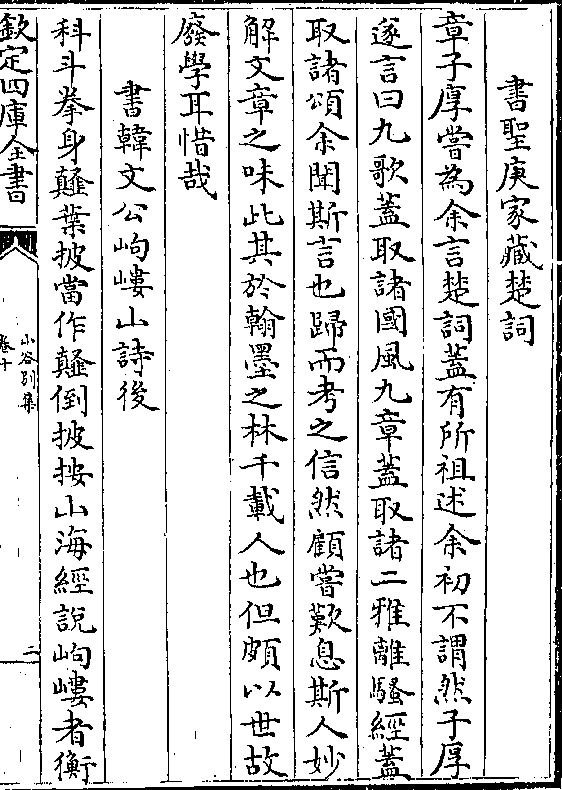 書聖庚家藏楚詞
章子厚嘗為余言楚詞蓋有所祖述余初不謂然子厚
遂言曰九歌蓋取諸國風九章蓋取諸二雅離騷經蓋
取諸頌余聞斯言也歸而考之信然顧嘗歎息斯人妙
解文章之味此其於翰墨之林千載人也但頗以世故
廢學耳惜哉
書韓文公岣嶁山詩後
科斗拳身薤葉披當作薤倒披按山海經說岣嶁者衡
欽定四庫全書
山谷别集
卷十
二